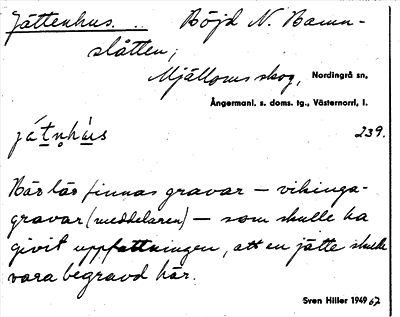 Jättenhus. .. Höjd N. Bann-
slåtten,
Mjällomsskog, Nordingrå sn,
Ångermanl. s. doms. tg., Västernorrl. l.
239.
Här lär finnas gravar – vikinga-
gravar (meddelaren) – som skulle ha
givit uppfattningen, att en jätte skulle
vara begravd här.
Sven Hiller 1949 67